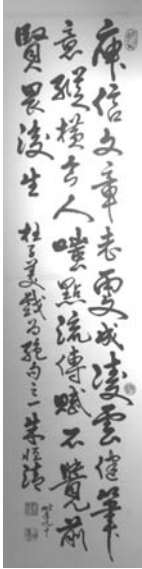 庾信文章老更成凌雲健筆
意縱橫今人嗤點流傳賦不覺前
賢畏後生 杜子美戲為絕句之一 朱恒清